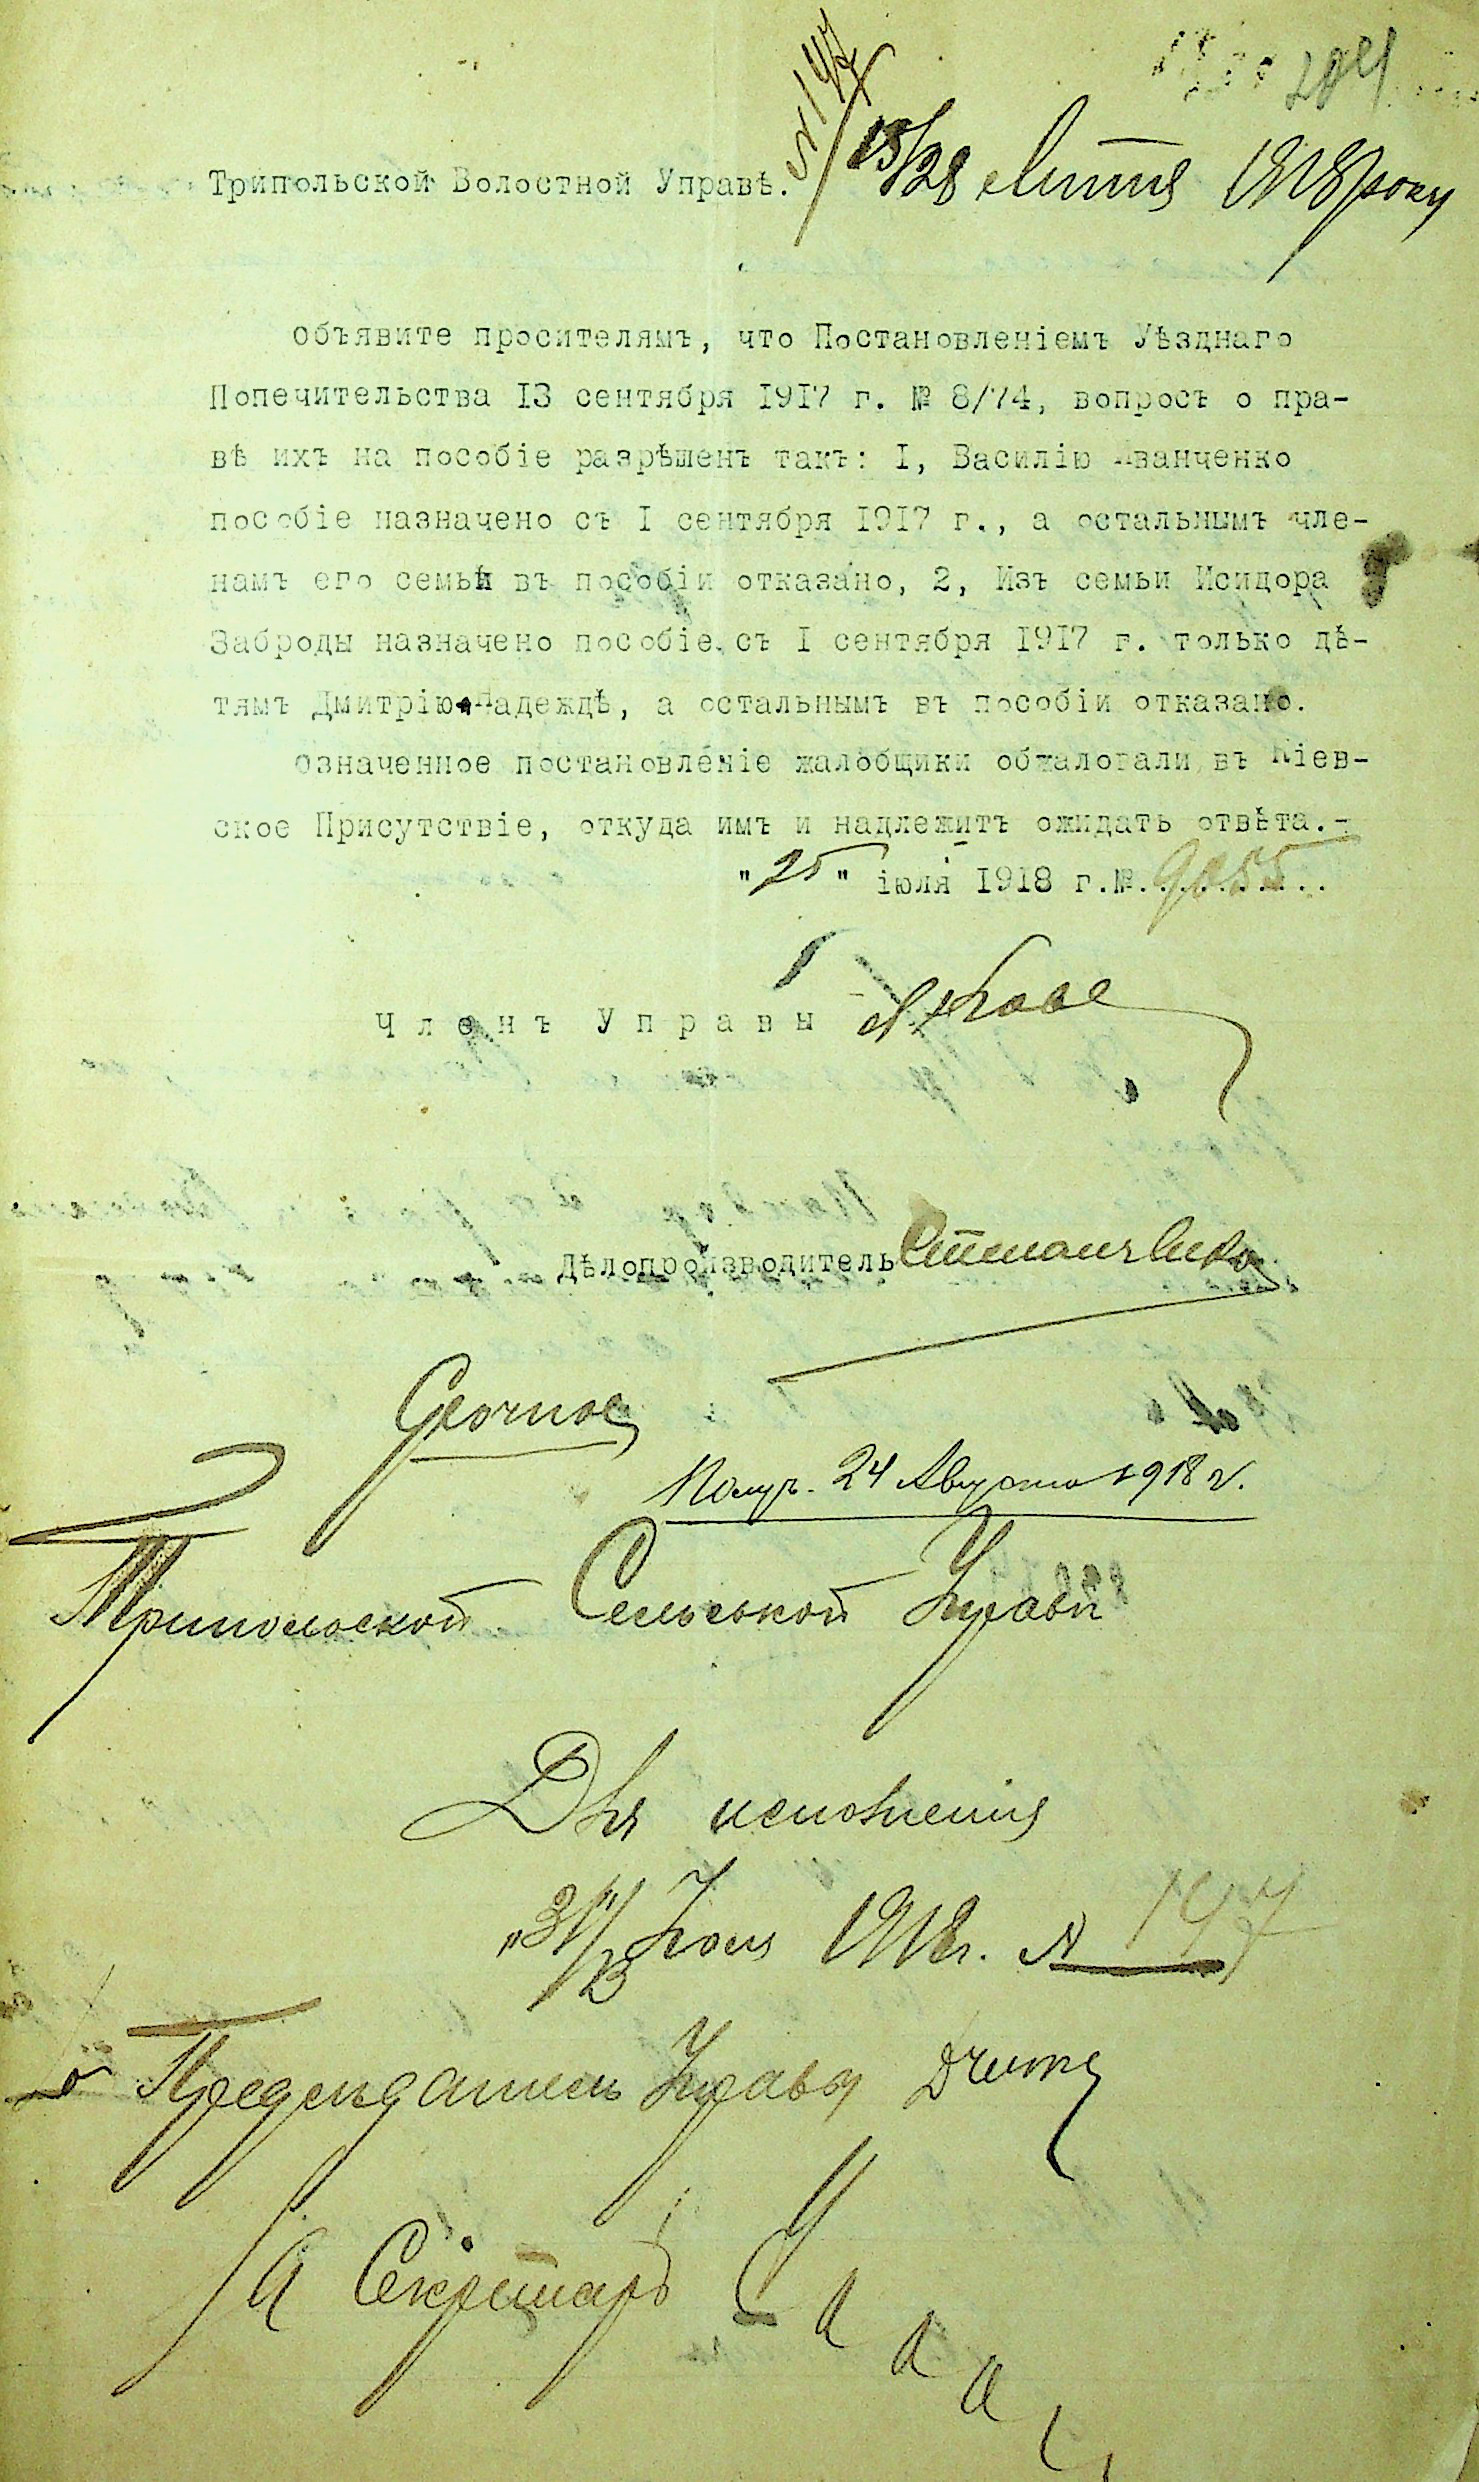 204
№ 147
15/28 Липня 1918 року
Трипольской Волостной Управѣ.
Объявите просителямъ, что Постановленіемъ Уѣзднаго
Попечительства 13 сентября 1917 г. № 8/74, вопросъ о пра-
вѣ ихъ на пособіе разрѣшенъ такъ: I, Василію Иванченко
пособіе назначено съ I сентября 1917 г., а остальнымъ чле-
намъ его семьи въ пособіи отказано, 2, Изъ семьи Исидора
Заброды назначено пособіе съ I сентября 1917 г. только дѣ-
тямъ Дмитрію и Надеждѣ, а остальнымъ въ пособіи отказано.
Означенное постановленіе жалобщики обжаловали въ Кіев-
ское Присутствіе, откуда имъ и надлежитъ ожидать отвѣта.-
"25" іюля 1918 г.№. 9055
Членъ Управы
Дѣлопроизводитель
Срочное
Получ. 24 Августа 1918 г.
Трипольской Сельской Управѣ
Для исполненія
"31"/13 Іюля 1918 г. № 147
Предсѣдатель Управы
Секретарь